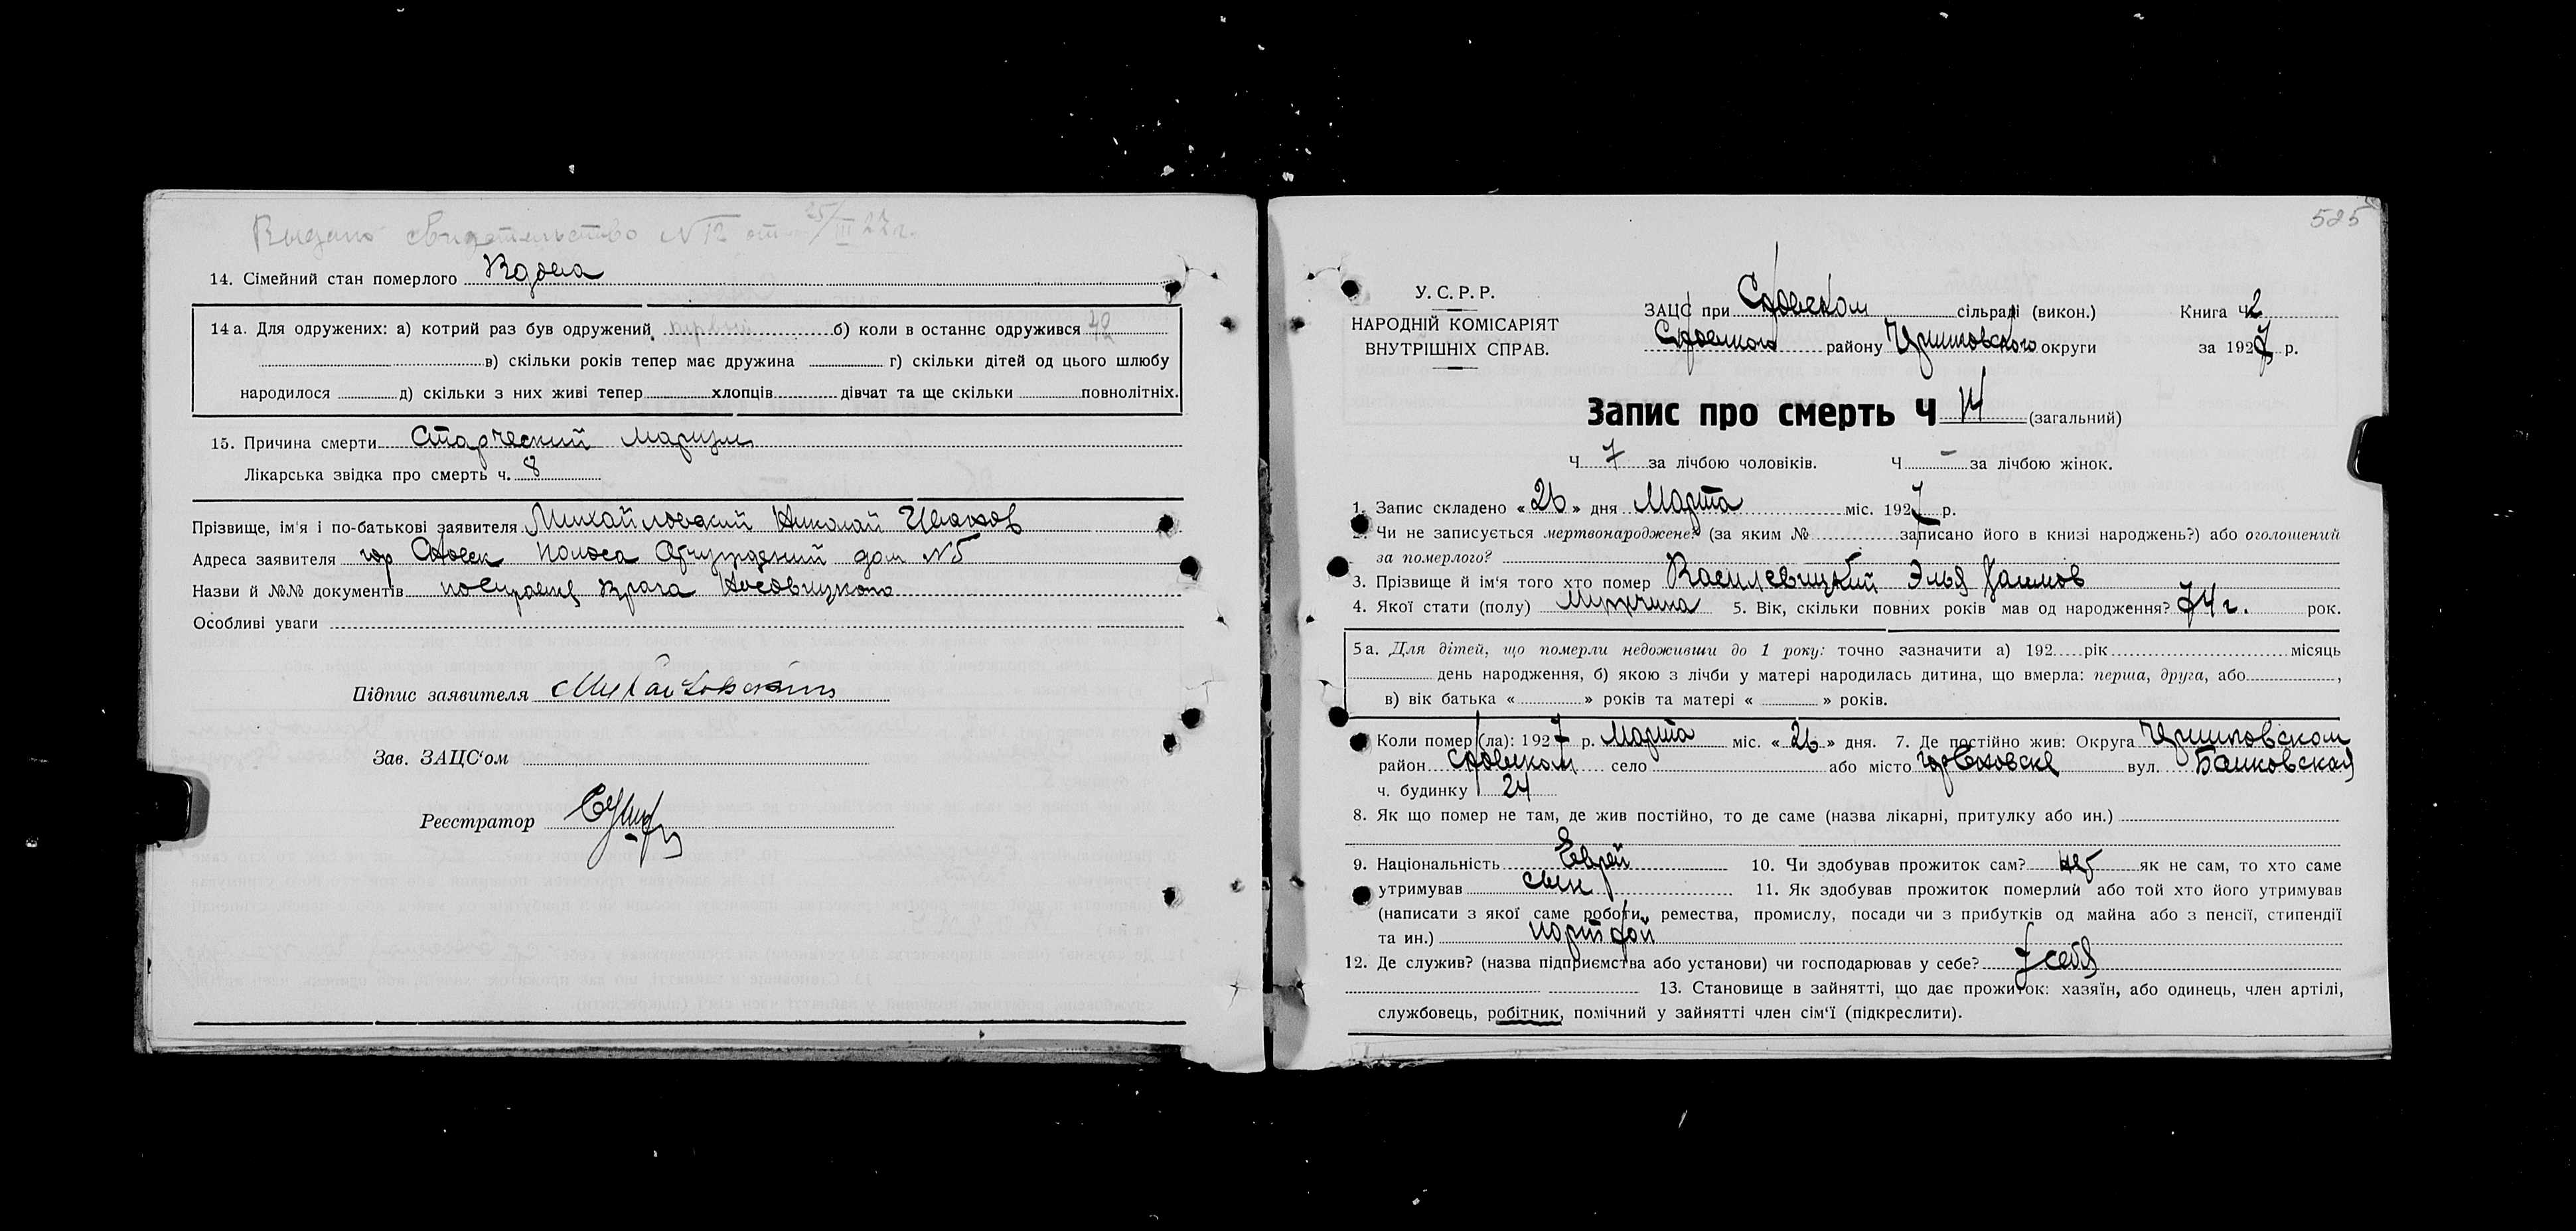 Выдано свидетельство N 12 от 25/III 27 г.
14. Сімейний стан померлого Вдова
14 а. Для одружених: а) котрий раз був одружений первый б) коли в останнє одружився
в) скільки років тепер має дружина г) скільки дітей од цього шлюбу
народилося д) скільки з них живі тепер хлопців дівчат та ще скільки повнолітніх.
15. Причина смерти Старческий Маразм
Лікарська звідка про смерть ч. 8
Прізвище, ім'я і по-батькові заявителя Михайловский Николай Иванов
Адреса заявителя гор Полоса Отчуждений дом №5
Назви й №№ документів Врача Носовицкого
Особливі уваги
Підпис заявителя Михайловский
Зав. ЗАЦС'ом
Реєстратор
525
У. С. Р. Р.
НАРОДНІЙ КОМІСАРІЯТ
ВНУТРІШНІХ СПРАВ.
ЗАЦС при сільраді (викон.)
району округи
Книга Ч 2
за 1927 р.
Запис про смерть Ч 14 (загальний)
Ч 7 за лічбою чоловіків. Ч - за лічбою жінок.
1. Запис складено «26» дня Марта міс. 1927 р.
2. Чи не записується мертвонароджене? (за яким № записано його в книзі народжень?) або оголошений
за померлого?
3. Прізвище й ім'я того хто помер Василевицкий Элья
4. Якої стати (полу) Мужчина 5. Вік, скільки повних років мав од народження? 74 г. рок.
5 а. Для дітей, що померли недоживши до 1 року: точно зазначити а) 192 рік місяць
день народження, б) якою з лічби у матері народилась дитина, що вмерла: перша, друга, або ,
в) вік батька « » років та матері « » років.
Коли помер (ла): 1927 р. Марта міс. «26» дня. 7. Де постійно жив: Округа
район село або місто вул. Банковская
ч. будинку 24
8. Як що помер не там, де жив постійно, то де саме (назва лікарні, притулку або ин.)
9. Національність Еврей 10. Чи здобував прожиток сам? нет як не сам, то хто саме
утримував сын 11. Як здобував прожиток померлий або той хто його утримував
(написати з якої саме роботи, ремества, промислу, посади чи з прибутків од майна або з пенсії, стипендії
та ин.) портной
12. Де служив? (назва підприємства або установи) чи господарював у себе? у себя
13. Становище в зайнятті, що дає прожиток: хазяїн, або одинець, член артілі,
службовець, робітник, помічний у зайнятті член сім'ї (підкреслити).